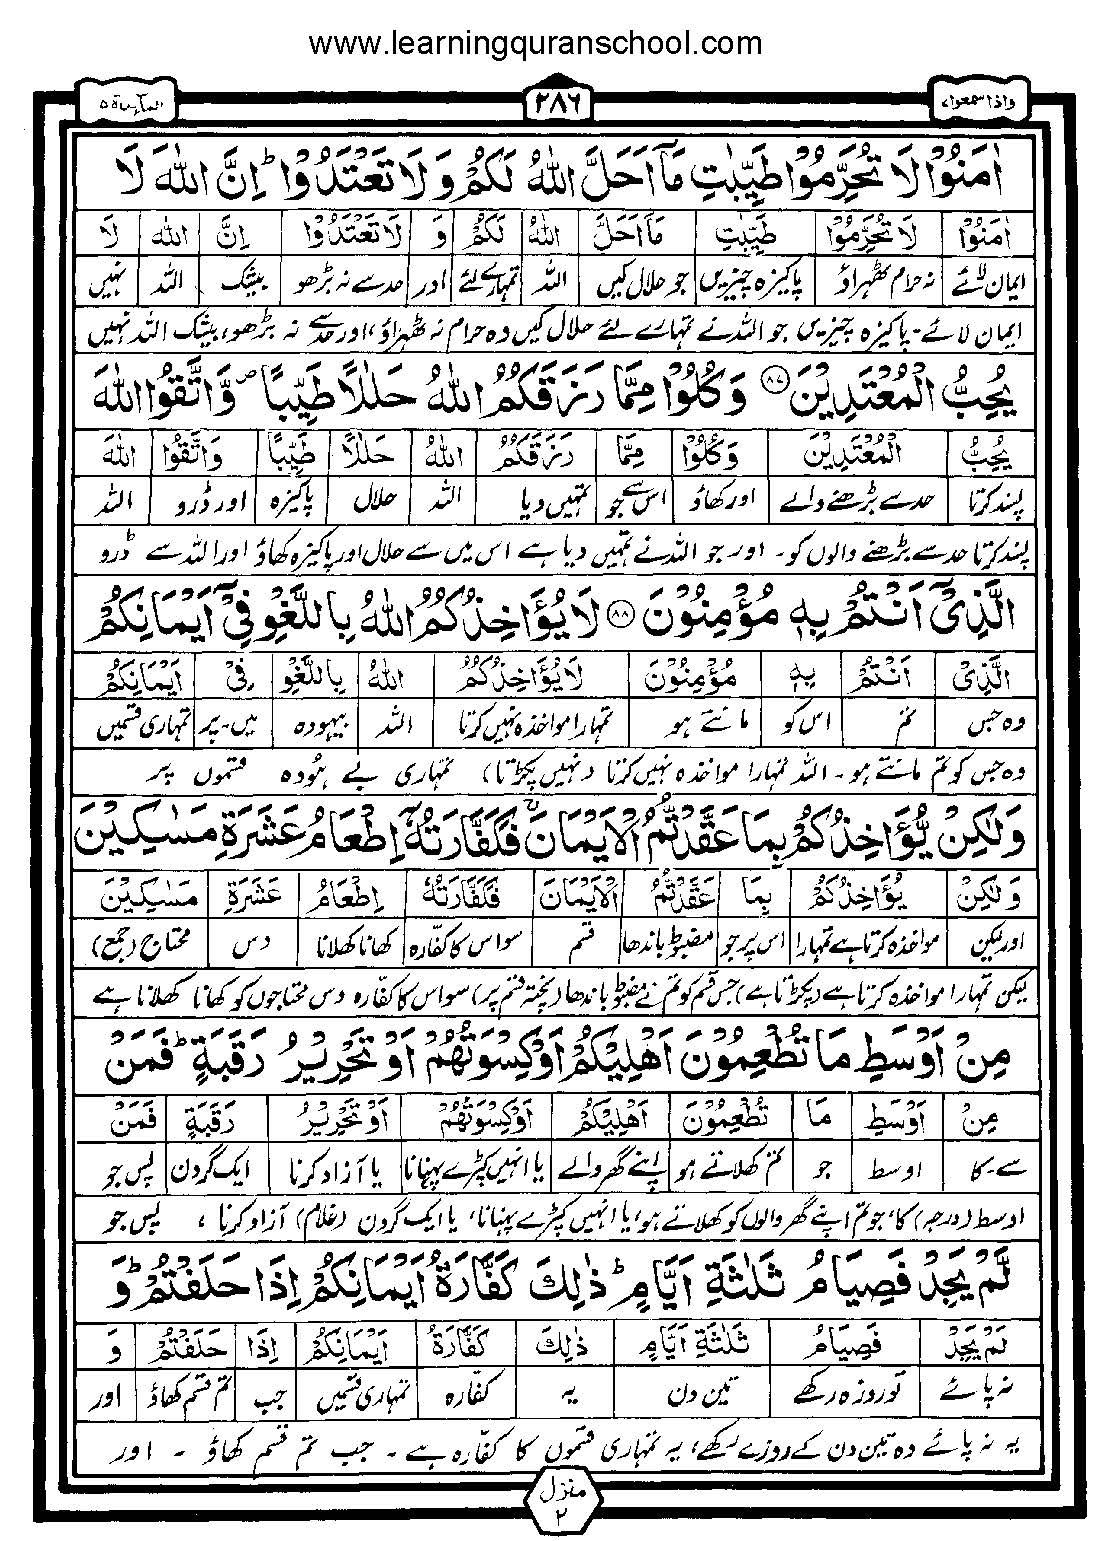 www.learningquranschool.com
واذا سمعوا، ٢٨٦ المآىدة ٥
اٰمَنُوْا لَا تُحَرِّمُوْا طَيِّبٰتِ مَآ اَحَلَّ اللّٰهُ لَكُمْ وَلَا تَعْتَدُوْا ؕ اِنَّ اللّٰهَ لَا
اٰمَنُوْا لَا تُحَرِّمُوْا طَيِّبٰتِ مَآ اَحَلَّ اللّٰهُ لَكُمْ وَ لَا تَعْتَدُوْا اِنَّ اللّٰهَ لَا
ایمان لائے نہ حرام ٹھہراؤ پاکیزہ چیزیں جو حلال کیں اللہ تمہارے لئے اور حد سے نہ بڑھو بیشک اللہ نہیں
ایمان لائے۔ پاکیزہ چیزیں جو اللہ نے تمہارے لئے حلال کیں وہ حرام نہ ٹھہراؤ، اور حد سے نہ بڑھو، بیشک اللہ نہیں
يُحِبُّ الْمُعْتَدِيْنَ ﴿٨٧﴾ وَكُلُوْا مِمَّا رَزَقَكُمُ اللّٰهُ حَلٰلًا طَيِّبًا ۪ وَّاتَّقُوا اللّٰهَ
يُحِبُّ الْمُعْتَدِيْنَ وَكُلُوْا مِمَّا رَزَقَكُمُ اللّٰهُ حَلٰلًا طَيِّبًا وَّاتَّقُوا اللّٰهَ
پسند کرتا حد سے بڑھنے والے اور کھاؤ اس سے جو تمہیں دیا اللہ حلال پاکیزہ اور ڈرو اللہ
پسند کرتا حد سے بڑھنے والوں کو۔ اور جو اللہ نے تمہیں دیا ہے اس میں سے حلال اور پاکیزہ کھاؤ اور اللہ سے ڈرو
الَّذِيْٓ اَنْتُمْ بِهٖ مُؤْمِنُوْنَ ﴿٨٨﴾ لَا يُؤَاخِذُكُمُ اللّٰهُ بِاللَّغْوِ فِيْٓ اَيْمَانِكُمْ
الَّذِيْٓ اَنْتُمْ بِهٖ مُؤْمِنُوْنَ لَا يُؤَاخِذُكُمُ اللّٰهُ بِاللَّغْوِ فِيْٓ اَيْمَانِكُمْ
وہ جس تم اس کو مانتے ہو تمہارا مواخذہ نہیں کرتا اللہ بیہودہ میں۔پر تمہاری قسمیں
وہ جس کو تم مانتے ہو۔ اللہ تمہارا مواخذہ نہیں کرتا (نہیں پکڑتا) تمہاری بے ہودہ قسموں پر
وَلٰكِنْ يُّؤَاخِذُكُمْ بِمَا عَقَّدْتُّمُ الْاَيْمَانَ ۚ فَكَفَّارَتُهٗٓ اِطْعَامُ عَشَرَةِ مَسٰكِيْنَ
وَلٰكِنْ يُّؤَاخِذُكُمْ بِمَا عَقَّدْتُّمُ الْاَيْمَانَ فَكَفَّارَتُهٗٓ اِطْعَامُ عَشَرَةِ مَسٰكِيْنَ
اور لیکن مواخذہ کرتا ہے تمہارا اس پر جو مضبوط باندھا قسم سو اس کا کفارہ کھانا کھلانا دس محتاج (جمع)
لیکن تمہارا مواخذہ کرتا ہے (پکڑتا ہے) جس قسم کو تم نے مضبوط باندھا (پختہ قسم پر) سو اس کا کفارہ دس محتاجوں کو کھانا کھلانا ہے
مِنْ اَوْسَطِ مَا تُطْعِمُوْنَ اَهْلِيْكُمْ اَوْ كِسْوَتُهُمْ اَوْ تَحْرِيْرُ رَقَبَةٍ ؕ فَمَنْ
مِنْ اَوْسَطِ مَا تُطْعِمُوْنَ اَهْلِيْكُمْ اَوْ كِسْوَتُهُمْ اَوْ تَحْرِيْرُ رَقَبَةٍ فَمَنْ
سے۔کا اوسط جو تم کھلاتے ہو اپنے گھر والے یا انہیں کپڑے پہنانا یا آزاد کرنا ایک گردن پس جو
اوسط (درجہ) کا، جو تم اپنے گھر والوں کو کھلاتے ہو، یا انہیں کپڑے پہنانا، یا ایک گردن (غلام) آزاد کرنا، پس جو
لَّمْ يَجِدْ فَصِيَامُ ثَلٰثَةِ اَيَّامٍ ؕ ذٰلِكَ كَفَّارَةُ اَيْمَانِكُمْ اِذَا حَلَفْتُمْ ؕ وَ
لَّمْ يَجِدْ فَصِيَامُ ثَلٰثَةِ اَيَّامٍ ذٰلِكَ كَفَّارَةُ اَيْمَانِكُمْ اِذَا حَلَفْتُمْ وَ
نہ پائے تو روزہ رکھے تین دن یہ کفارہ تمہاری قسمیں جب تم قسم کھاؤ اور
یہ نہ پائے وہ تین دن کے روزے رکھے، یہ تمہاری قسموں کا کفارہ ہے۔ جب تم قسم کھاؤ ۔ اور
منزل ٢